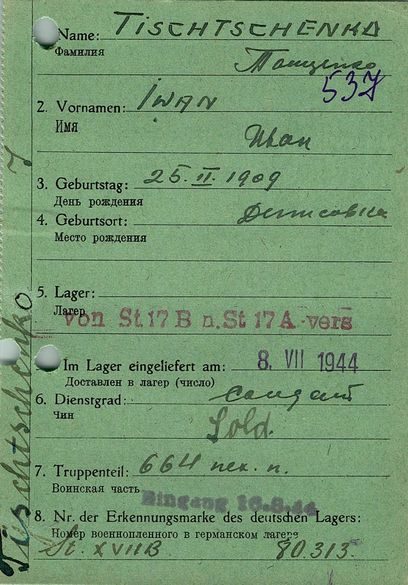 Name: TISCHTSCHENKO
Фамилия
Тищенко
537
2. Vornamen: IWAN
Имя
Иван
3. Geburtstag: 25. II. 1909
День рождения
4. Geburtsort: Денисовка
Место рождения
5. Lager:
Лагерь
von St 17 B n. St 17 A vers
Im Lager eingeliefert am: 8. VII 1944
Доставлен в лагерь (число)
6. Dienstgrad: солдат
Чин
Sold.
7. Truppenteil: 664 пех. п.
Воинская часть
Eingang 16.8.44
8. Nr. der Erkennungsmarke des deutschen Lagers:
Номер военнопленного в германском лагере
St. XVIIB 80.313.
Tischtschenko J